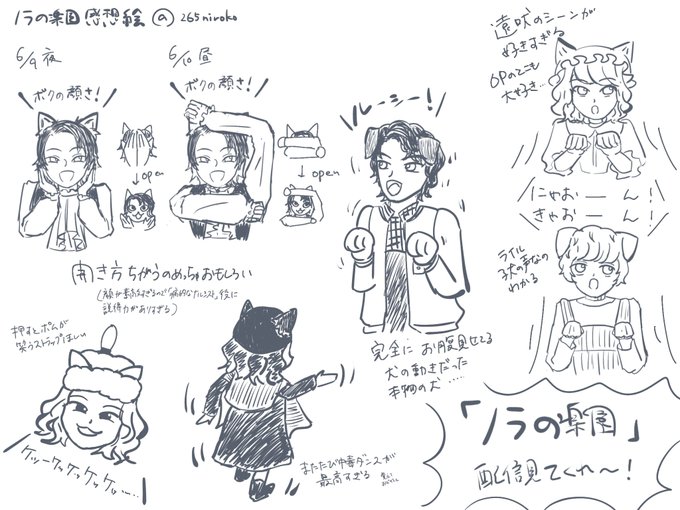 ノラの楽園 感想絵 @265niroko
6/9 夜
ボクの顔さ!
open
6/10 昼
ボクの顔さ!
open
開き方ちがうのめっちゃおもしろい
ルーシー!
完全にお腹見せてる
犬の動きだった
本物の犬……
遠吠のシーンが
好きすぎる
OPのとこも
大好き…
にゃおーーん!
きゃおーーん!
ライル
子犬の声なの
わかる
押すとポムが
笑うストラップほしい
ケッーケッケッケッケッ……
またたび中毒ダンスが
最高すぎる
「ノラの楽園」
配信観てくれ〜!